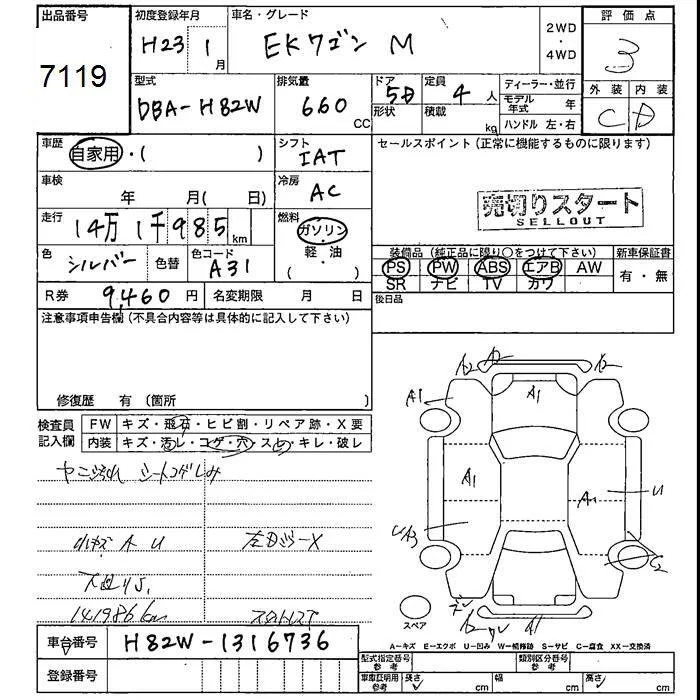 出品番号 初度登録年月 車名・グレード 2WD・4WD 評価点
7119 H23 1月 EKワゴン M 3
型式 排気量 ドア形状 定員 ディーラー・並行 外装 内装
DBA-H82W 660 CC 5D 4人 モデル年式 年 C D
積載 kg ハンドル 左・右
車歴 自家用・( ) シフト IAT セールスポイント (正常に機能するものに限ります)
車検 年 月( 日) 冷房 AC
売切りスタート
SELLOUT
走行 14万1千985km 燃料 ガソリン・軽・油 ( )
色 シルバー 色替 色コード A31
装備品 (純正品に限り○をつけて下さい) 新車保証書
PS PW ABS エアB AW 有・無
SR ナビ TV カワ
R券 9,460円 名変期限 月 日
後日品
注意事項申告欄 (不具合内容等は具体的に記入して下さい)
修復歴 有 (箇所 )
検査員記入欄 FW キズ・飛石・ヒビ割・リペア跡・X要
内装 キズ・汚レ・コゲ・穴・スレ・キレ・破レ
ヤニ汚れ シートコゲしみ
小キズ A U
141986km
A2 A2 A2
A1 A1
A1 A1 U
UA3 C2
A1
スペア
A−キズ E−エクボ U−凹み W−補修跡 S−サビ C−腐食 XX−交換済
車台番号 H82W-1316736
登録番号
型式指定番号 参考 類別区分番号 参考
車庫証明用 参考 長さ cm 幅 cm 高さ cm